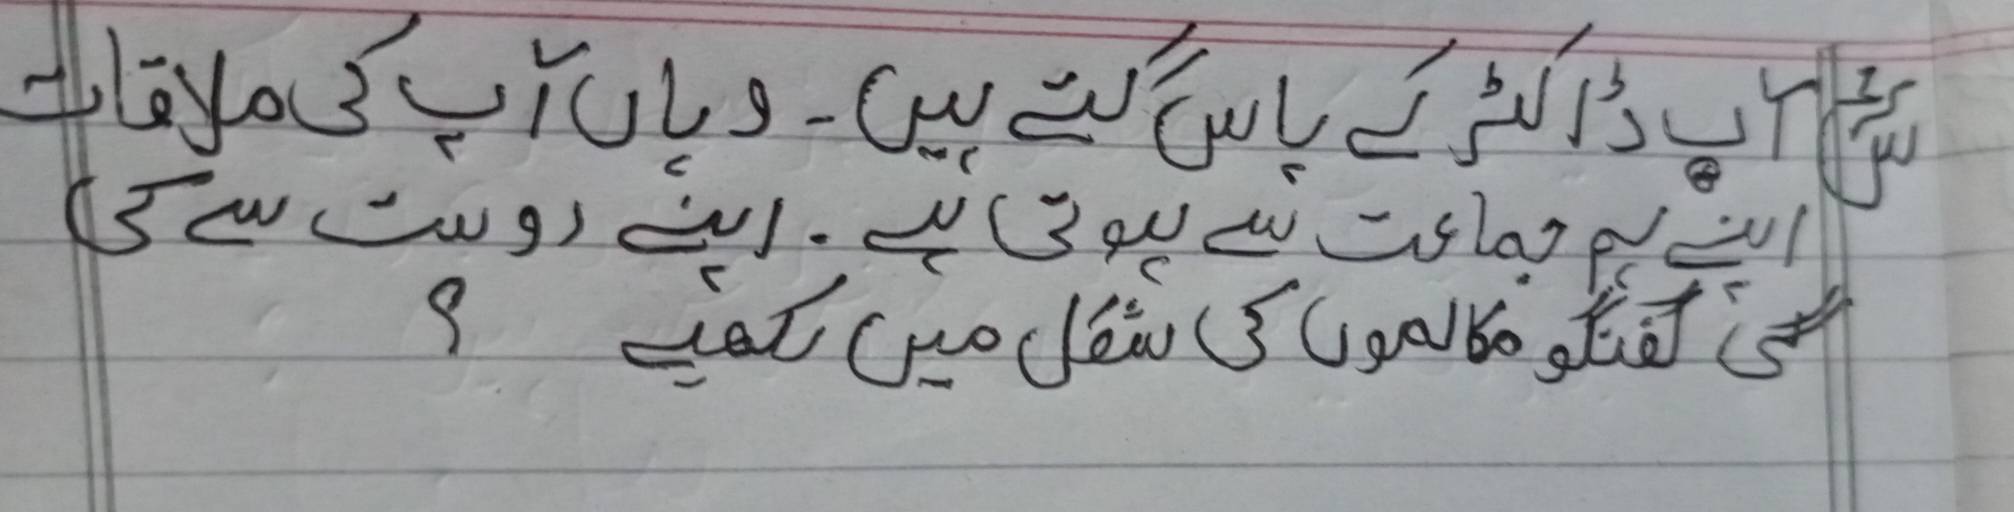 آپ ڈاکٹر کے پاس گئے ہیں۔ وہاں آپ کی ملاقات
اپنے ہم جماعت سے ہوتی ہے۔ اپنے دوست سے کی
گئی گفتگو مکالموں کی شکل میں لکھیے ؟